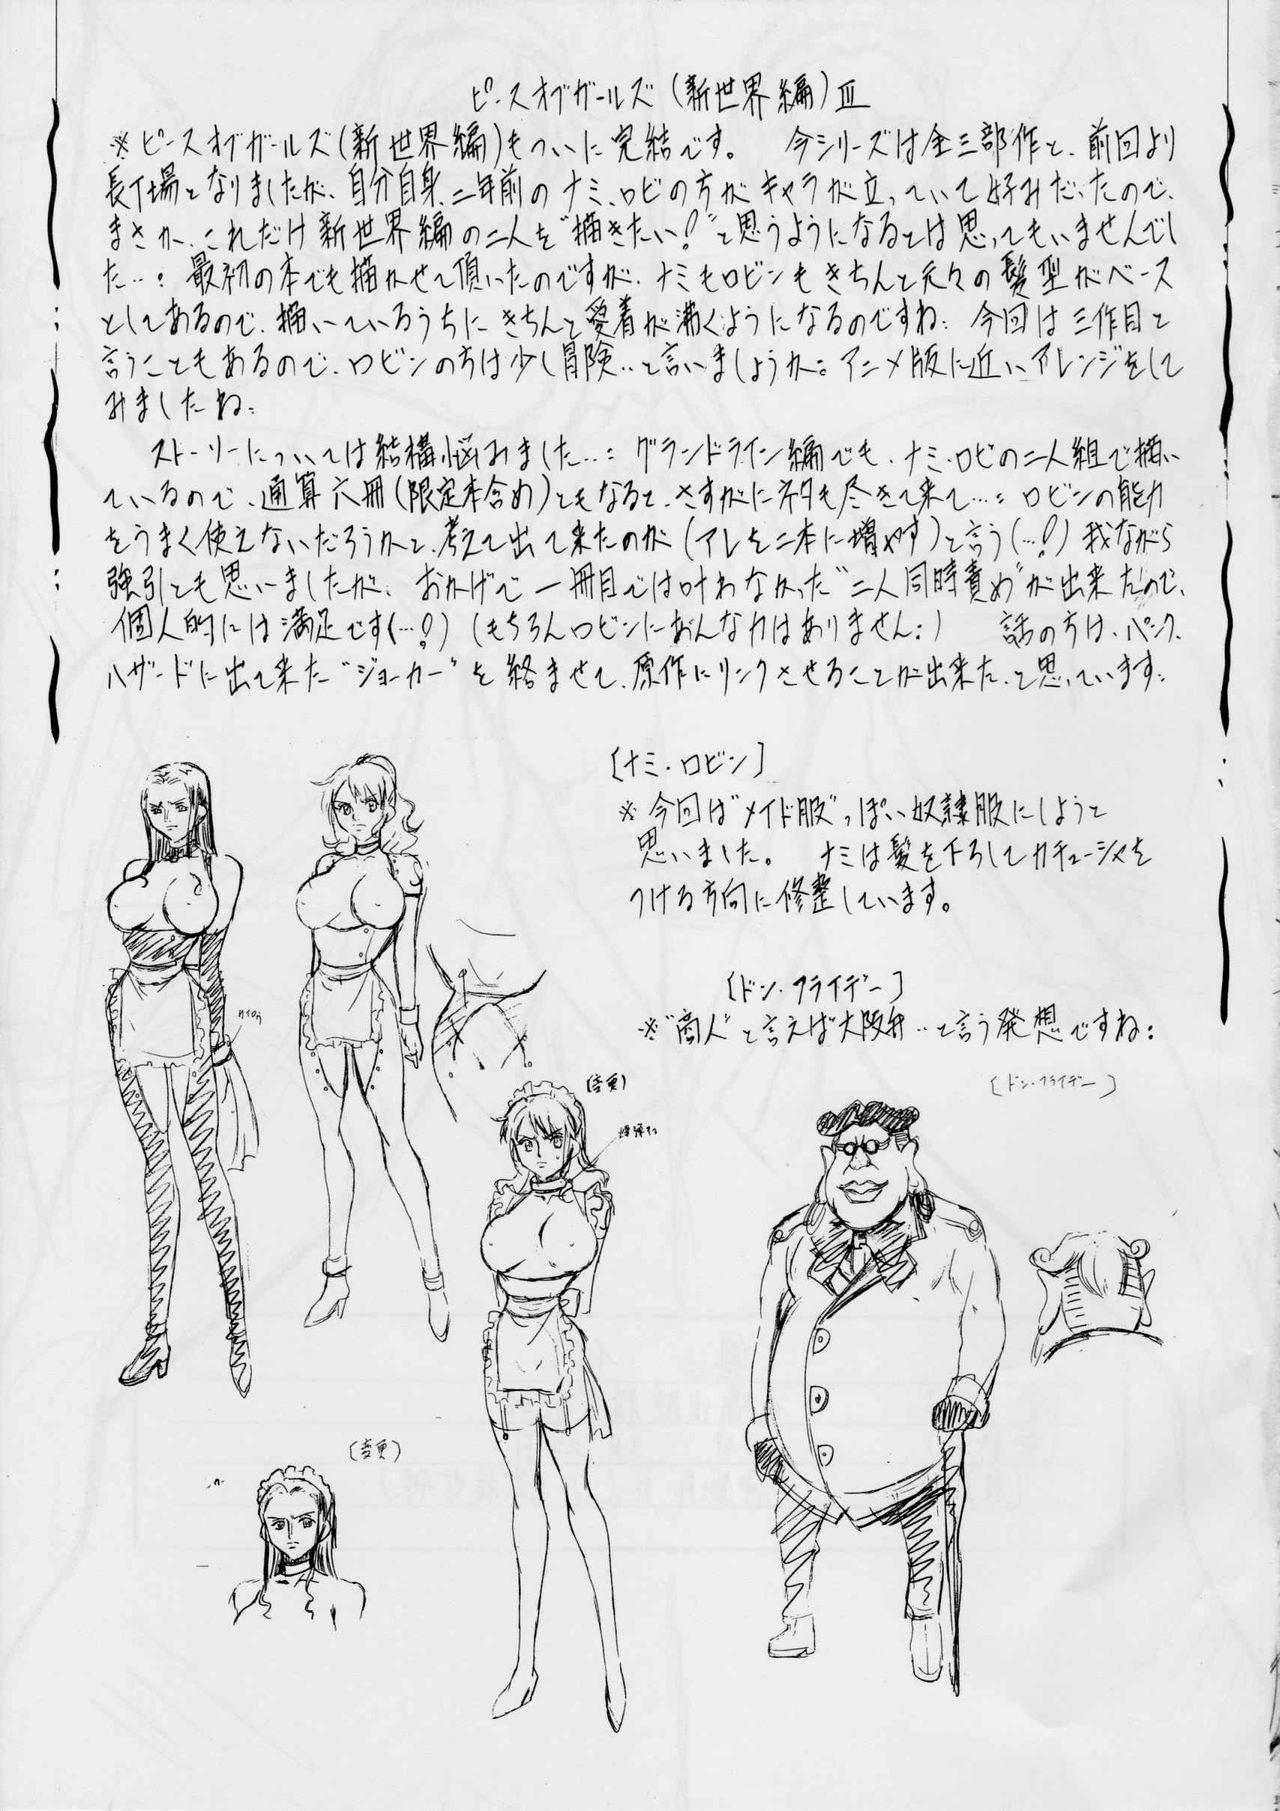 ピースオブガールズ(新世界編)Ⅲ
※ピースオブガールズ(新世界編)もついに完結です。 今シリーズは全三部作と、前回より
長丁場となりましたが、自分自身、二年前のナミ、ロビの方がキャラが立っていて好みだったので、
まさか、これだけ新世界編の二人を"描きたい!"と思うようになるとは思ってもいませんでし
た…: 最初の本でも描かせて頂いたのですが、ナミもロビンもきちんと元々の髪型がベース
としてあるので、描いているうちにきちんと愛着が沸くようになるのですね: 今回は三作目と
言うこともあるので、ロビンの方は少し冒険‥と言いましょうか。アニメ版に近いアレンジをして
みましたね:
ストーリーについては結構悩みました…: グランドライン編でも、ナミ、ロビの二人組で描い
ているので、通算六冊(限定本含め)ともなると、さすがにネタも尽きて来て…: ロビンの能力
をうまく使えないだろうかと、考えて出て来たのが(アレを二本に増やす)と言う(…!?)我ながら
強引とも思いましたが、おかげで一冊目では叶わなかった"二人同時責め"が出来たので、
個人的には満足です(…!?)(もちろんロビンにあんな力はありません:) 話の方は、パンク
ハザードに出て来た"ジョーカー"を絡ませて、原作にリンクさせることが出来た、と思っています:
[ナミ・ロビン]
※今回は"メイド服"っぽい奴隷服にしようと
思いました。 ナミは髪を下ろしてカチューシャを
つける方向に修整しています。
[ドン・フライデー]
※"商人"と言えば大阪弁‥と言う発想ですね:
[ドン・フライデー]
(変更)
(変更)